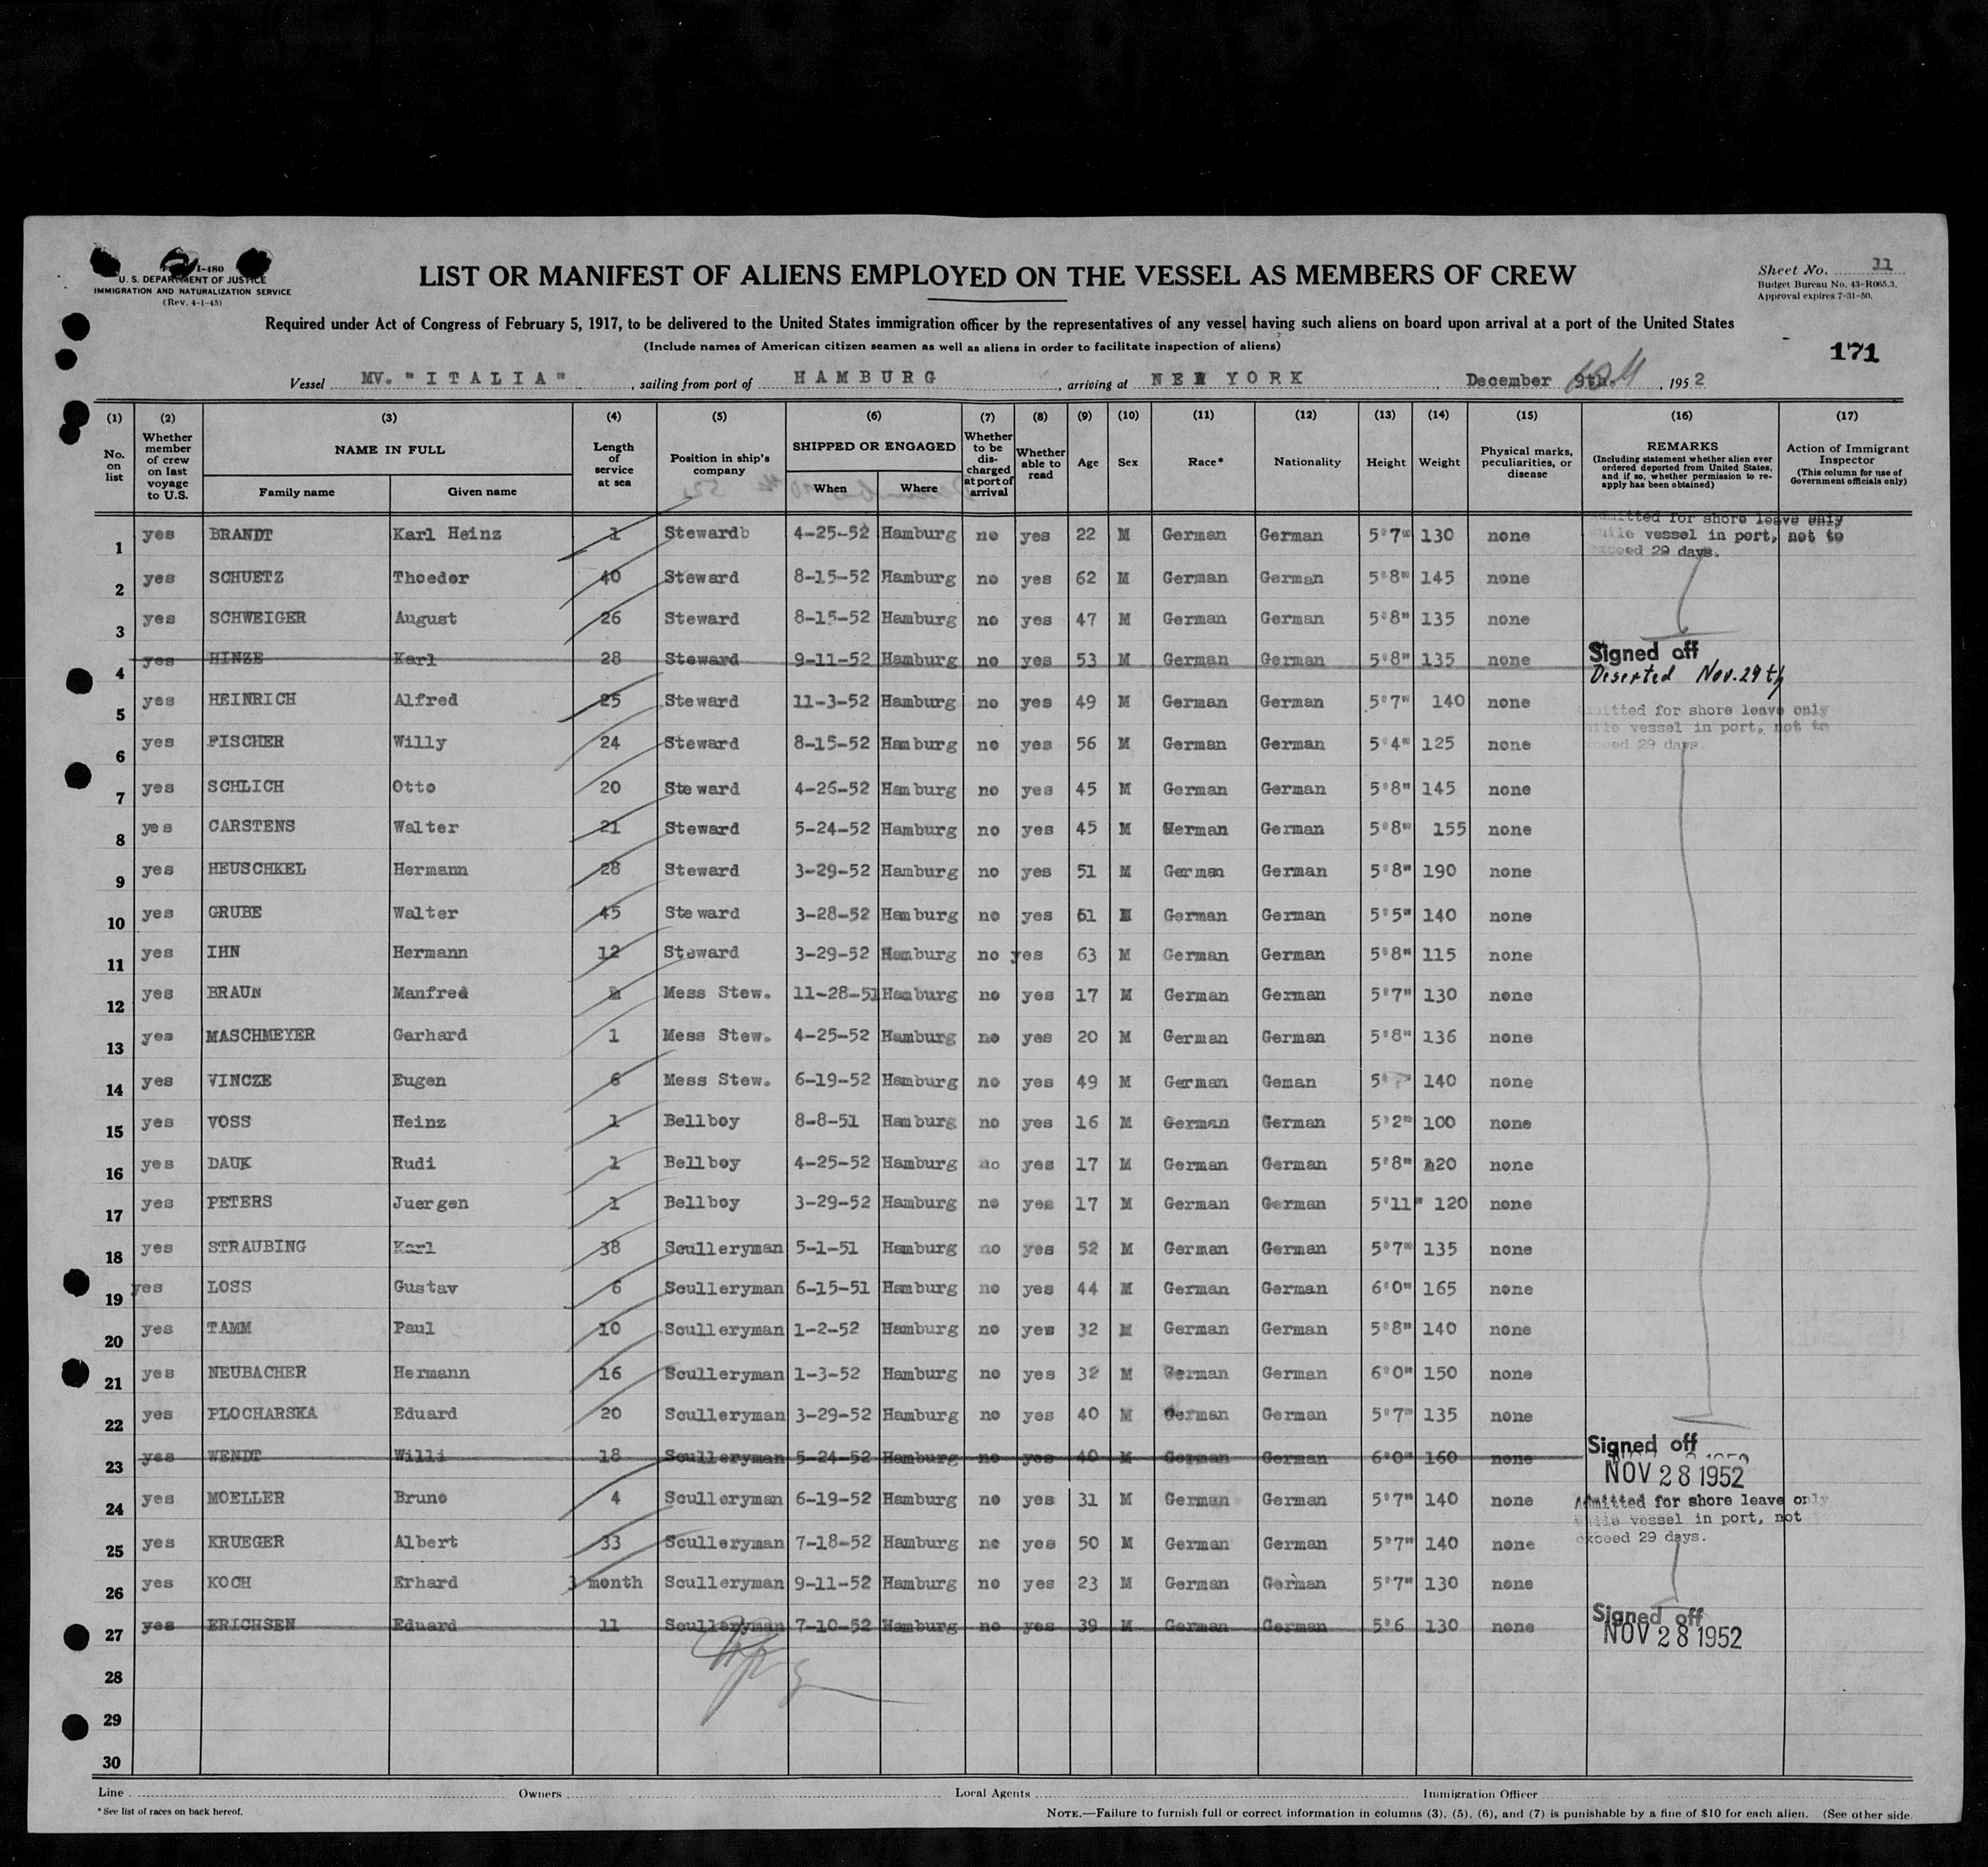 I-480
U. S. DEPARTMENT OF JUSTICE
IMMIGRATION AND NATURALIZATION SERVICE
(Rev. 4-1-45)
LIST OR MANIFEST OF ALIENS EMPLOYED ON THE VESSEL AS MEMBERS OF CREW
Sheet No. 11
Budget Bureau No. 43-R065.3.
Approval expires 7-31-50.
Required under Act of Congress of February 5, 1917, to be delivered to the United States immigration officer by the representatives of any vessel having such aliens on board upon arrival at a port of the United States
(Include names of American citizen seamen as well as aliens in order to facilitate inspection of aliens)
171
Vessel MV. "ITALIA", sailing from port of HAMBURG, arriving at NEW YORK, December 9th, 1952
(1) No. on list (2) Whether member of crew on last voyage to U.S. (3) NAME IN FULL Family name Given name (4) Length of service at sea (5) Position in ship's company (6) SHIPPED OR ENGAGED When Where (7) Whether to be discharged at port of arrival (8) Whether able to read (9) Age (10) Sex (11) Race* (12) Nationality (13) Height (14) Weight (15) Physical marks, peculiarities, or disease (16) REMARKS (Including statement whether alien ever ordered deported from United States, and if so, whether permission to re-apply has been obtained) (17) Action of Immigrant Inspector (This column for use of Government officials only)
1 yes BRANDT Karl Heinz 1 Stewardb 4-25-52 Hamburg no yes 22 M German German 5'7" 130 none Admitted for shore leave only while vessel in port, not to exceed 29 days.
2 yes SCHUETZ Thoedor 40 Steward 8-15-52 Hamburg no yes 62 M German German 5'8" 145 none
3 yes SCHWEIGER August 26 Steward 8-15-52 Hamburg no yes 47 M German German 5'8" 135 none
4 yes HINZE Karl 28 Steward 9-11-52 Hamburg no yes 53 M German German 5'8" 135 none Signed off Deserted Nov. 29th
5 yes HEINRICH Alfred 25 Steward 11-3-52 Hamburg no yes 49 M German German 5'7" 140 none Admitted for shore leave only while vessel in port, not to exceed 29 days.
6 yes FISCHER Willy 24 Steward 8-15-52 Hamburg no yes 56 M German German 5'4" 125 none
7 yes SCHLICH Otto 20 Steward 4-26-52 Hamburg no yes 45 M German German 5'8" 145 none
8 yes CARSTENS Walter 21 Steward 5-24-52 Hamburg no yes 45 M German German 5'8" 155 none
9 yes HEUSCHKEL Hermann 28 Steward 3-29-52 Hamburg no yes 51 M German German 5'8" 190 none
10 yes GRUBE Walter 45 Steward 3-28-52 Hamburg no yes 61 M German German 5'5" 140 none
11 yes IHN Hermann 12 Steward 3-29-52 Hamburg no yes 63 M German German 5'8" 115 none
12 yes BRAUN Manfred Mess Stew. 11-28-51 Hamburg no yes 17 M German German 5'7" 130 none
13 yes MASCHMEYER Gerhard 1 Mess Stew. 4-25-52 Hamburg no yes 20 M German German 5'8" 136 none
14 yes VINCZE Eugen 6 Mess Stew. 6-19-52 Hamburg no yes 49 M German Geman 5' 140 none
15 yes VOSS Heinz 1 Bellboy 8-8-51 Hamburg no yes 16 M German German 5'2" 100 none
16 yes DAUK Rudi 1 Bellboy 4-25-52 Hamburg no yes 17 M German German 5'8" 120 none
17 yes PETERS Juergen 1 Bellboy 3-29-52 Hamburg no yes 17 M German German 5'11" 120 none
18 yes STRAUBING Karl 38 Sculleryman 5-1-51 Hamburg no yes 52 M German German 5'7" 135 none
19 yes LOSS Gustav 6 Sculleryman 6-15-51 Hamburg no yes 44 M German German 6'0" 165 none
20 yes TAMM Paul 10 Sculleryman 1-2-52 Hamburg no yes 32 M German German 5'8" 140 none
21 yes NEUBACHER Hermann 16 Sculleryman 1-3-52 Hamburg no yes 32 M German German 6'0" 150 none
22 yes PLOCHARSKA Eduard 20 Sculleryman 3-29-52 Hamburg no yes 40 M German German 5'7" 135 none
23 yes WENDT Willi 18 Sculleryman 5-24-52 Hamburg no yes 40 M German German 6'0" 160 none Signed off NOV 28 1952
24 yes MOELLER Bruno 4 Sculleryman 6-19-52 Hamburg no yes 31 M German German 5'7" 140 none Admitted for shore leave only while vessel in port, not
25 yes KRUEGER Albert 33 Sculleryman 7-18-52 Hamburg no yes 50 M German German 5'7" 140 none exceed 29 days.
26 yes KOCH Erhard 3 month Sculleryman 9-11-52 Hamburg no yes 23 M German German 5'7" 130 none
27 yes ERICHSEN Eduard 11 Sculleryman 7-10-52 Hamburg no yes 39 M German German 5'6 130 none Signed off NOV 28 1952
28
29
30
Line Owners Local Agents Immigration Officer
* See list of races on back hereof.
NOTE.—Failure to furnish full or correct information in columns (3), (5), (6), and (7) is punishable by a fine of $10 for each alien. (See other side.